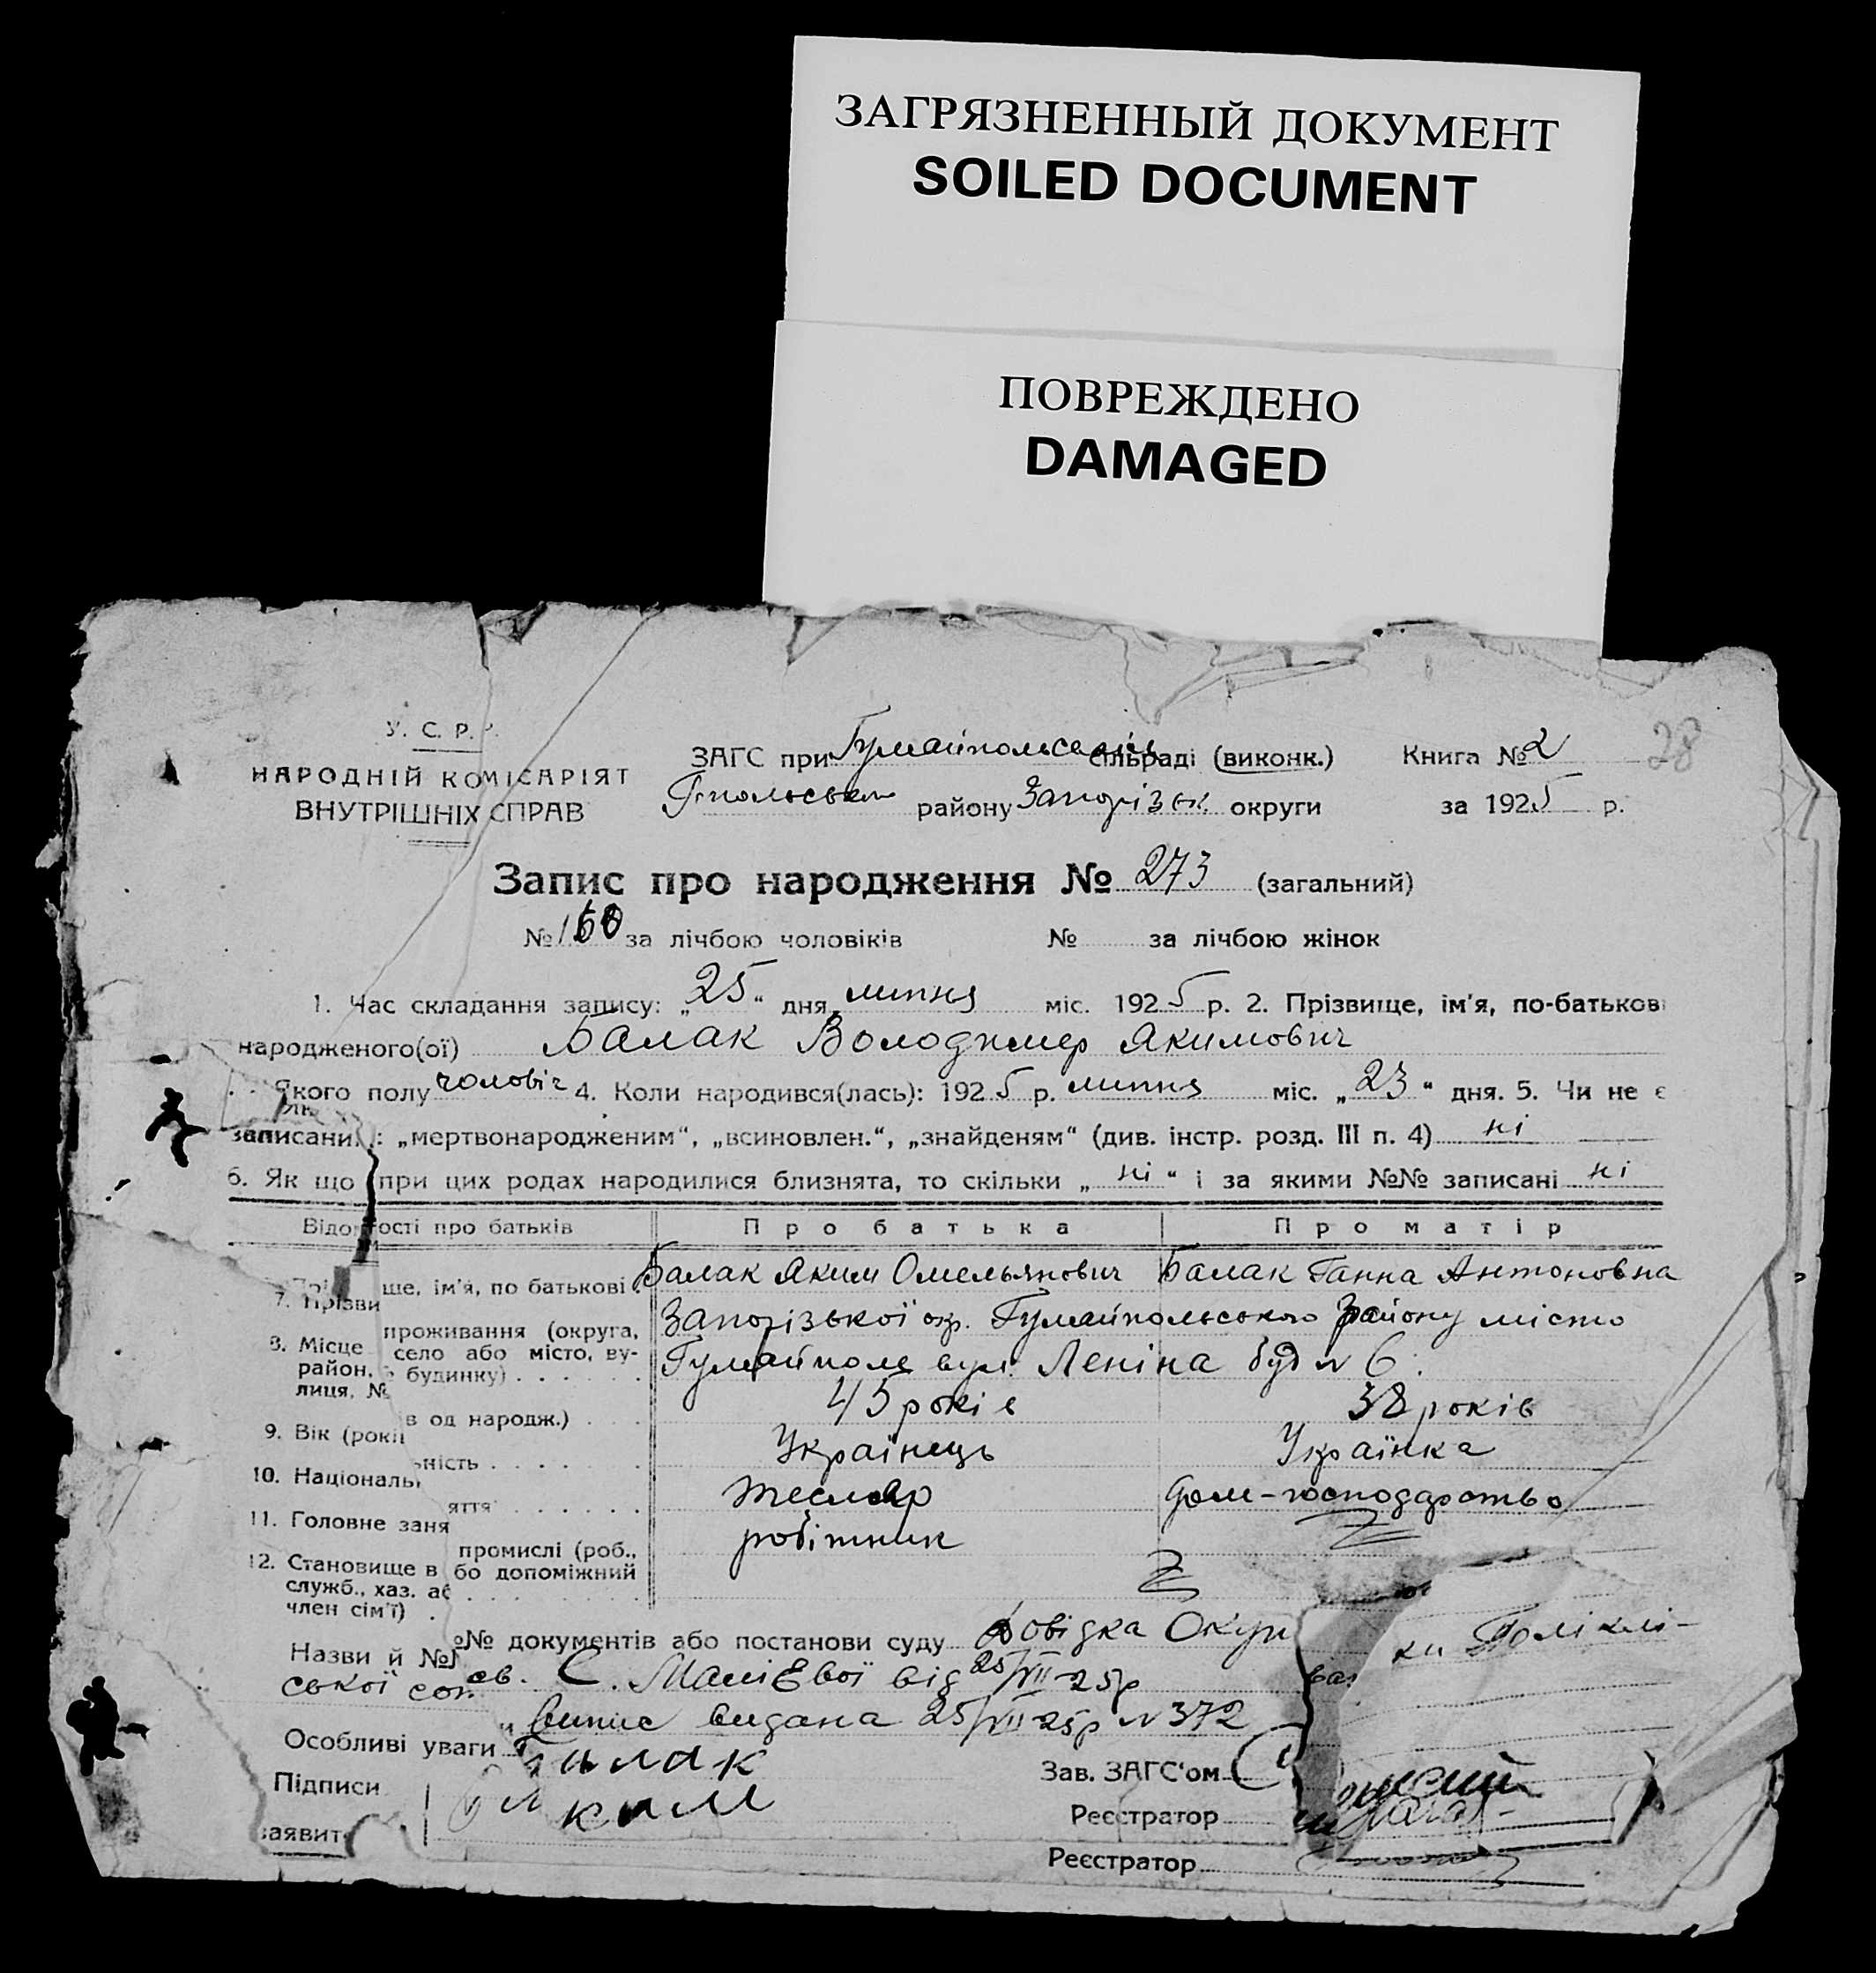 ЗАГРЯЗНЕННЫЙ ДОКУМЕНТ
SOILED DOCUMENT
ПОВРЕЖДЕНО
DAMAGED
28
У. С. Р. Р.
НАРОДНІЙ КОМІСАРІЯТ
ВНУТРІШНІХ СПРАВ
ЗАГС при сільраді (виконк.) Книга № 2
району Запорізьк. округи за 1925 р.
Запис про народження № 273 (загальний)
№ за лічбою чоловіків № за лічбою жінок
1. Час складання запису: „25“ дня липня міс. 1925 р. 2. Прізвище, ім'я, по-батькові
народженого(ої) Балак Володимер Якимович
Якого полу чоловіч 4. Коли народився(лась): 1925 р. липня міс. „23“ дня. 5. Чи не є
записани: „мертвонародженим“, „всиновлен.“, „знайденям“ (див. інстр. розд. III п. 4) ні
6. Як що при цих родах народилися близнята, то скільки „ні“ і за якими №№ записані ні
Відомості про батьків Про батька Про матір
7. Прізвище, ім'я, по батькові Балак Яким Омельянович Балак Ганна Антоновна
8. Місце проживання (округа, район, село або місто, вулиця, № будинку) Запорізької окр. Гуляйпольського району місто
Гуляйполе вул. Леніна буд № 6.
9. Вік (років од народж.) 45 років 38 років
10. Національність Українець Українка
11. Головне заняття Тесляр дом-господарство
12. Становище в промислі (роб., служб., хаз. або допоміжний член сім'ї) робітник
Назви й №№ документів або постанови суду Довідка ки Поліклі-
ської від 25/VII-25р
Особливі уваги Випис видана 25/VII 25р № 372
Підписи Балак Зав. ЗАГС'ом
Яким Реєстратор
заявит
Реєстратор